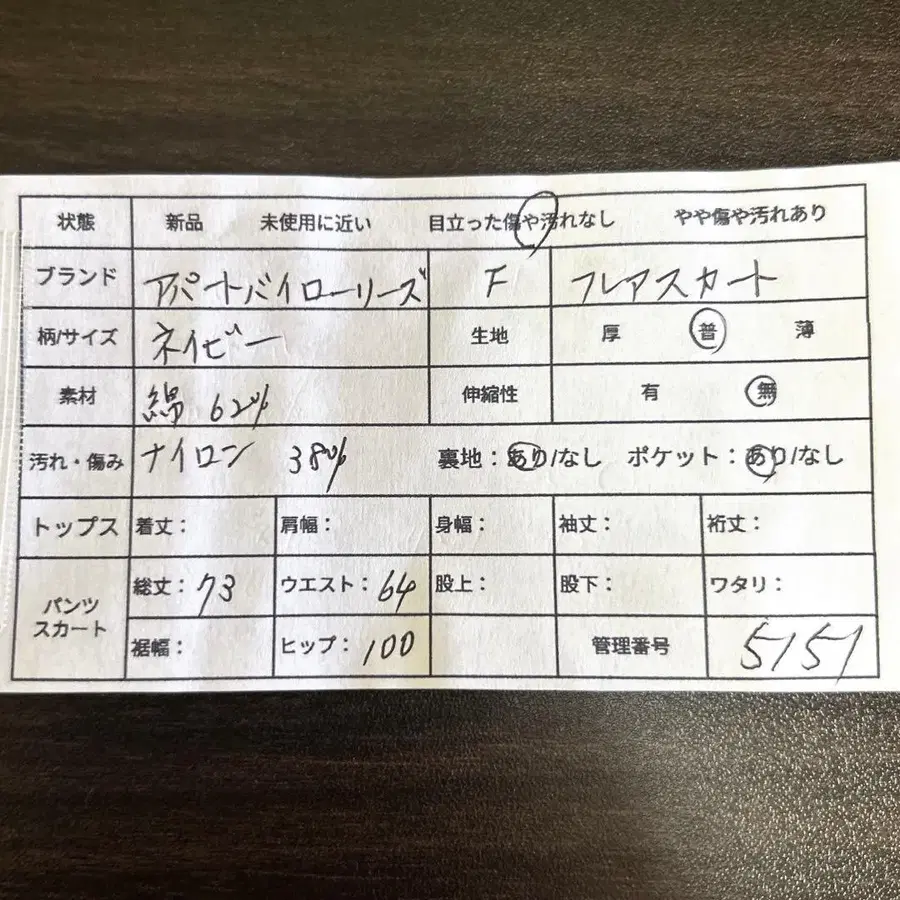 状態 新品 未使用に近い 目立った傷や汚れなし やや傷や汚れあり
ブランド アパートバイローリーズ F フレアスカート
柄/サイズ ネイビー 生地 厚 普 薄
素材 綿 62% 伸縮性 有 無
汚れ・傷み ナイロン 38% 裏地：あり/なし ポケット：あり/なし
トップス 着丈： 肩幅： 身幅： 袖丈： 裄丈：
パンツ
スカート
総丈：73 ウエスト：64 股上： 股下： ワタリ：
裾幅： ヒップ：100 管理番号 5151